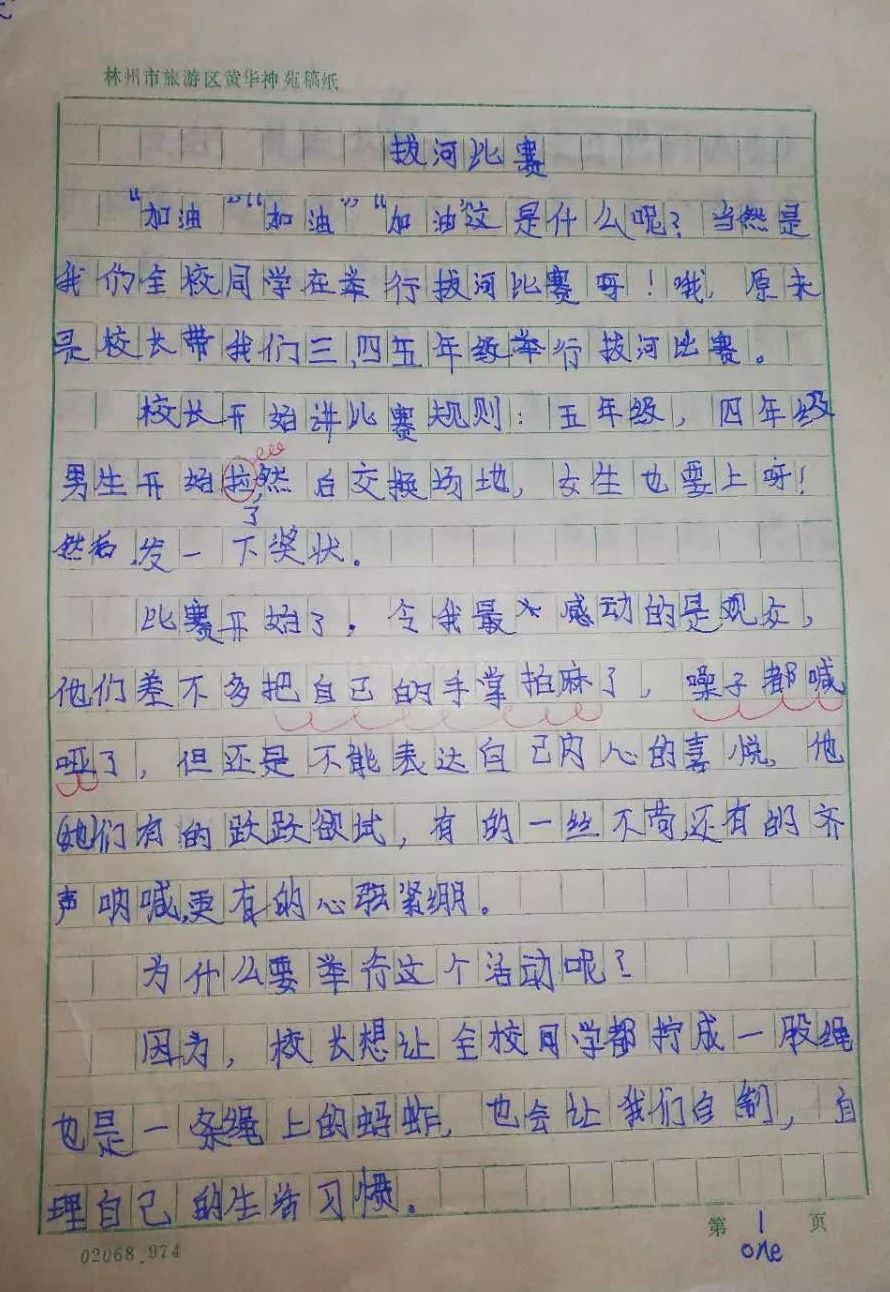 林州市旅游区黄华神苑稿纸
拔河比赛
“加油”“加油”“加油”这是什么呢？当然是
我们全校同学在举行拔河比赛呀！哦，原来
是校长带我们三、四五年级举行拔河比赛。
校长开始讲比赛规则：五年级，四年级
男生开始拉然后交换场地，女生也要上呀！
了
然后，发一下奖状。
比赛开始了，令我最大感动的是观众，
他们差不多把自己的手掌拍麻了，嗓子都喊
哑了，但还是不能表达自己内心的喜悦，他
(她)们有的跃跃欲试，有的一丝不苟，还有的齐
声呐喊，更有的心弦紧绷。
为什么要举行这个活动呢？
因为，校长想让全校同学都拧成一股绳
也是一条绳上的蚂蚱，也会让我们自制，自
理自己的生活习惯。
02068.974
第1页
one